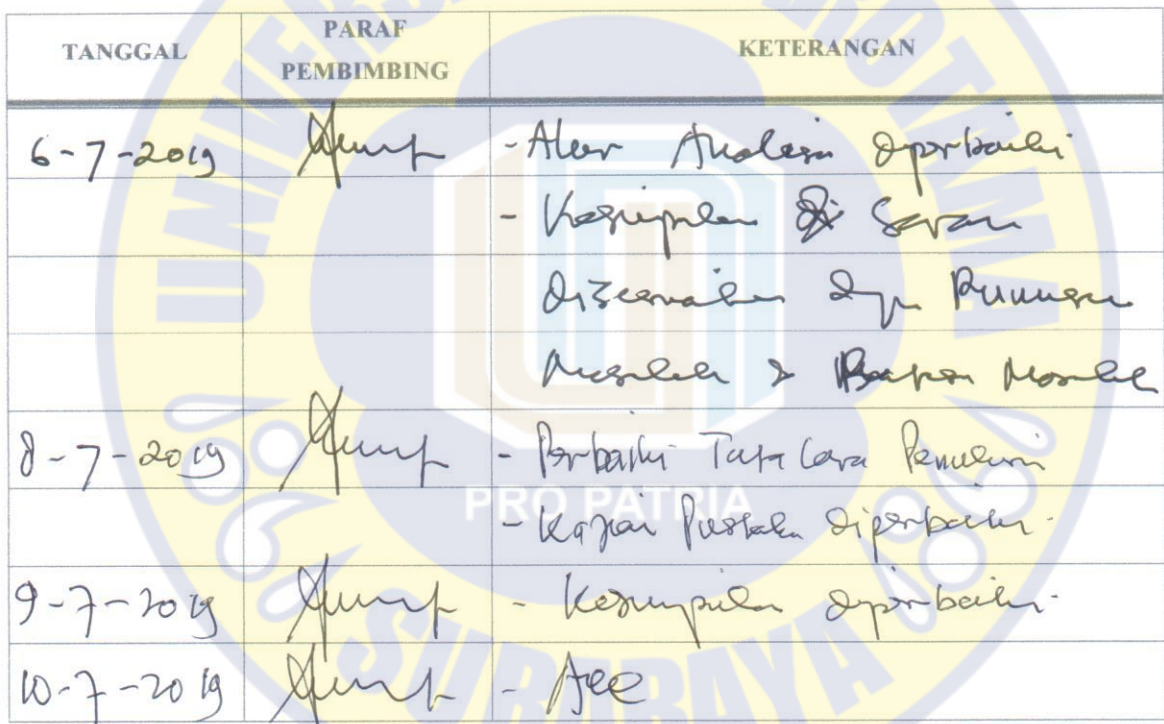 TANGGAL PARAF PEMBIMBING KETERANGAN
6-7-2019 - Alur Analisa diperbaiki
- Kesimpulan & Saran
disesuaikan dgn Rumusan
Masalah & Batasan Masalah
8-7-2019 - Perbaiki Tata Cara Penulisan
- Kajian Pustaka diperbaiki.
9-7-2019 - Kesimpulan diperbaiki.
10-7-2019 - Acc
PRO PATRIA
SURABAYA